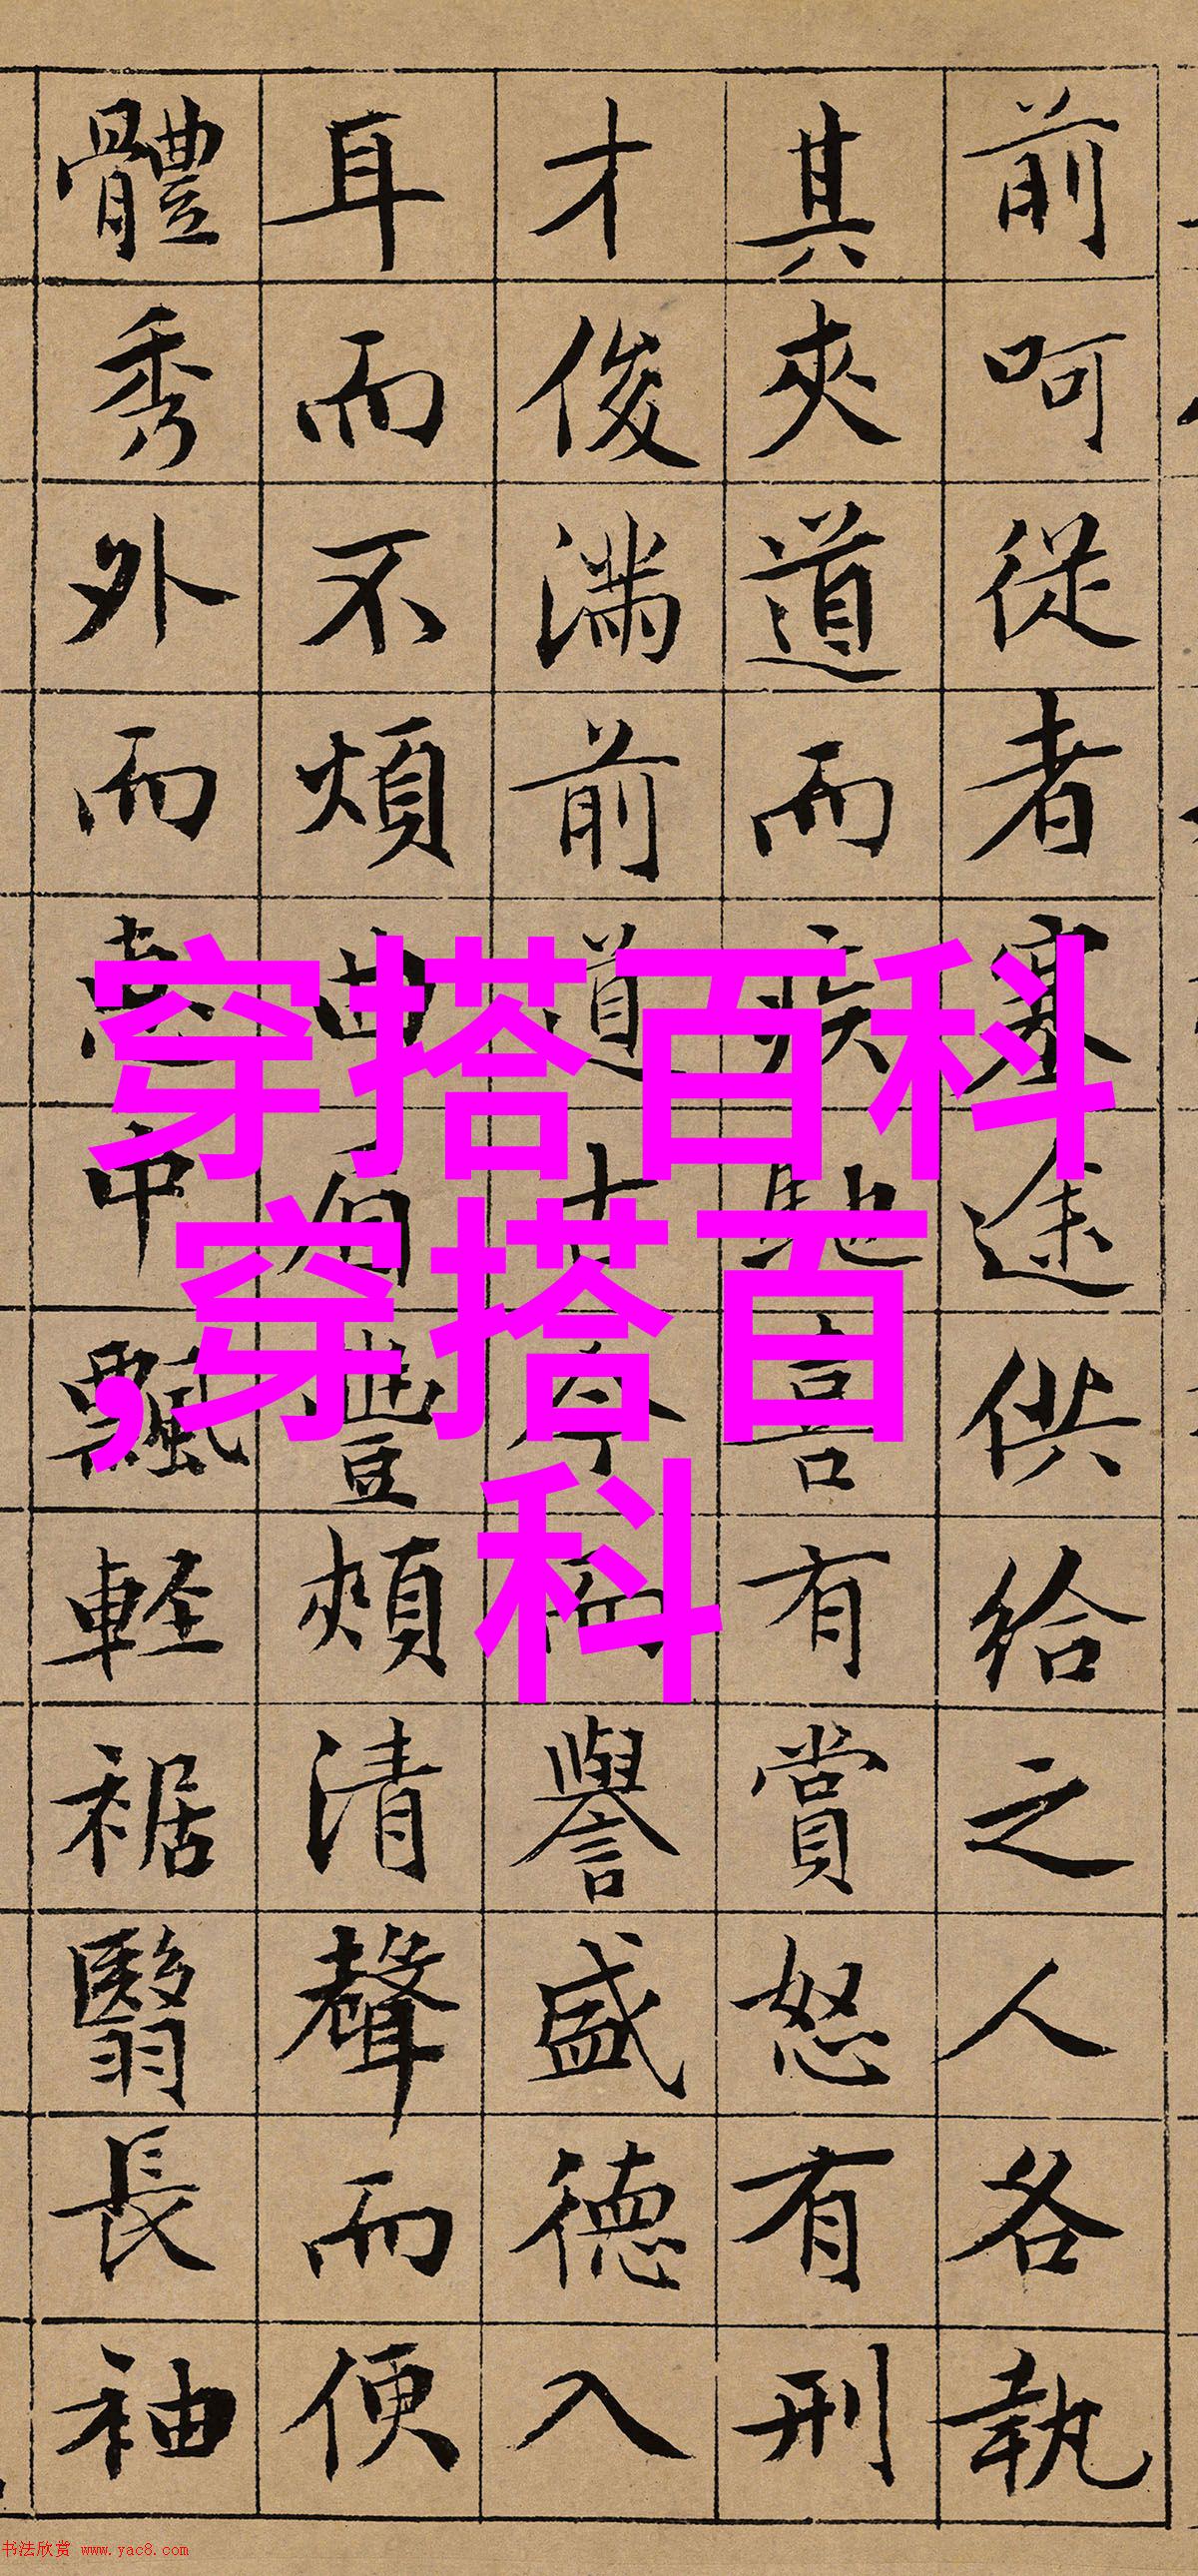 前呵從者塞途供給之人各執
其夾道而疾馳喜有賞怒有刑
才俊滿前道古今而譽盛德入
耳而不煩曲眉豐頰清聲而便
體秀外而惠中飄輕裾翳長袖
穿搭百科
,穿搭百
科
书法欣赏 www.yac8.com